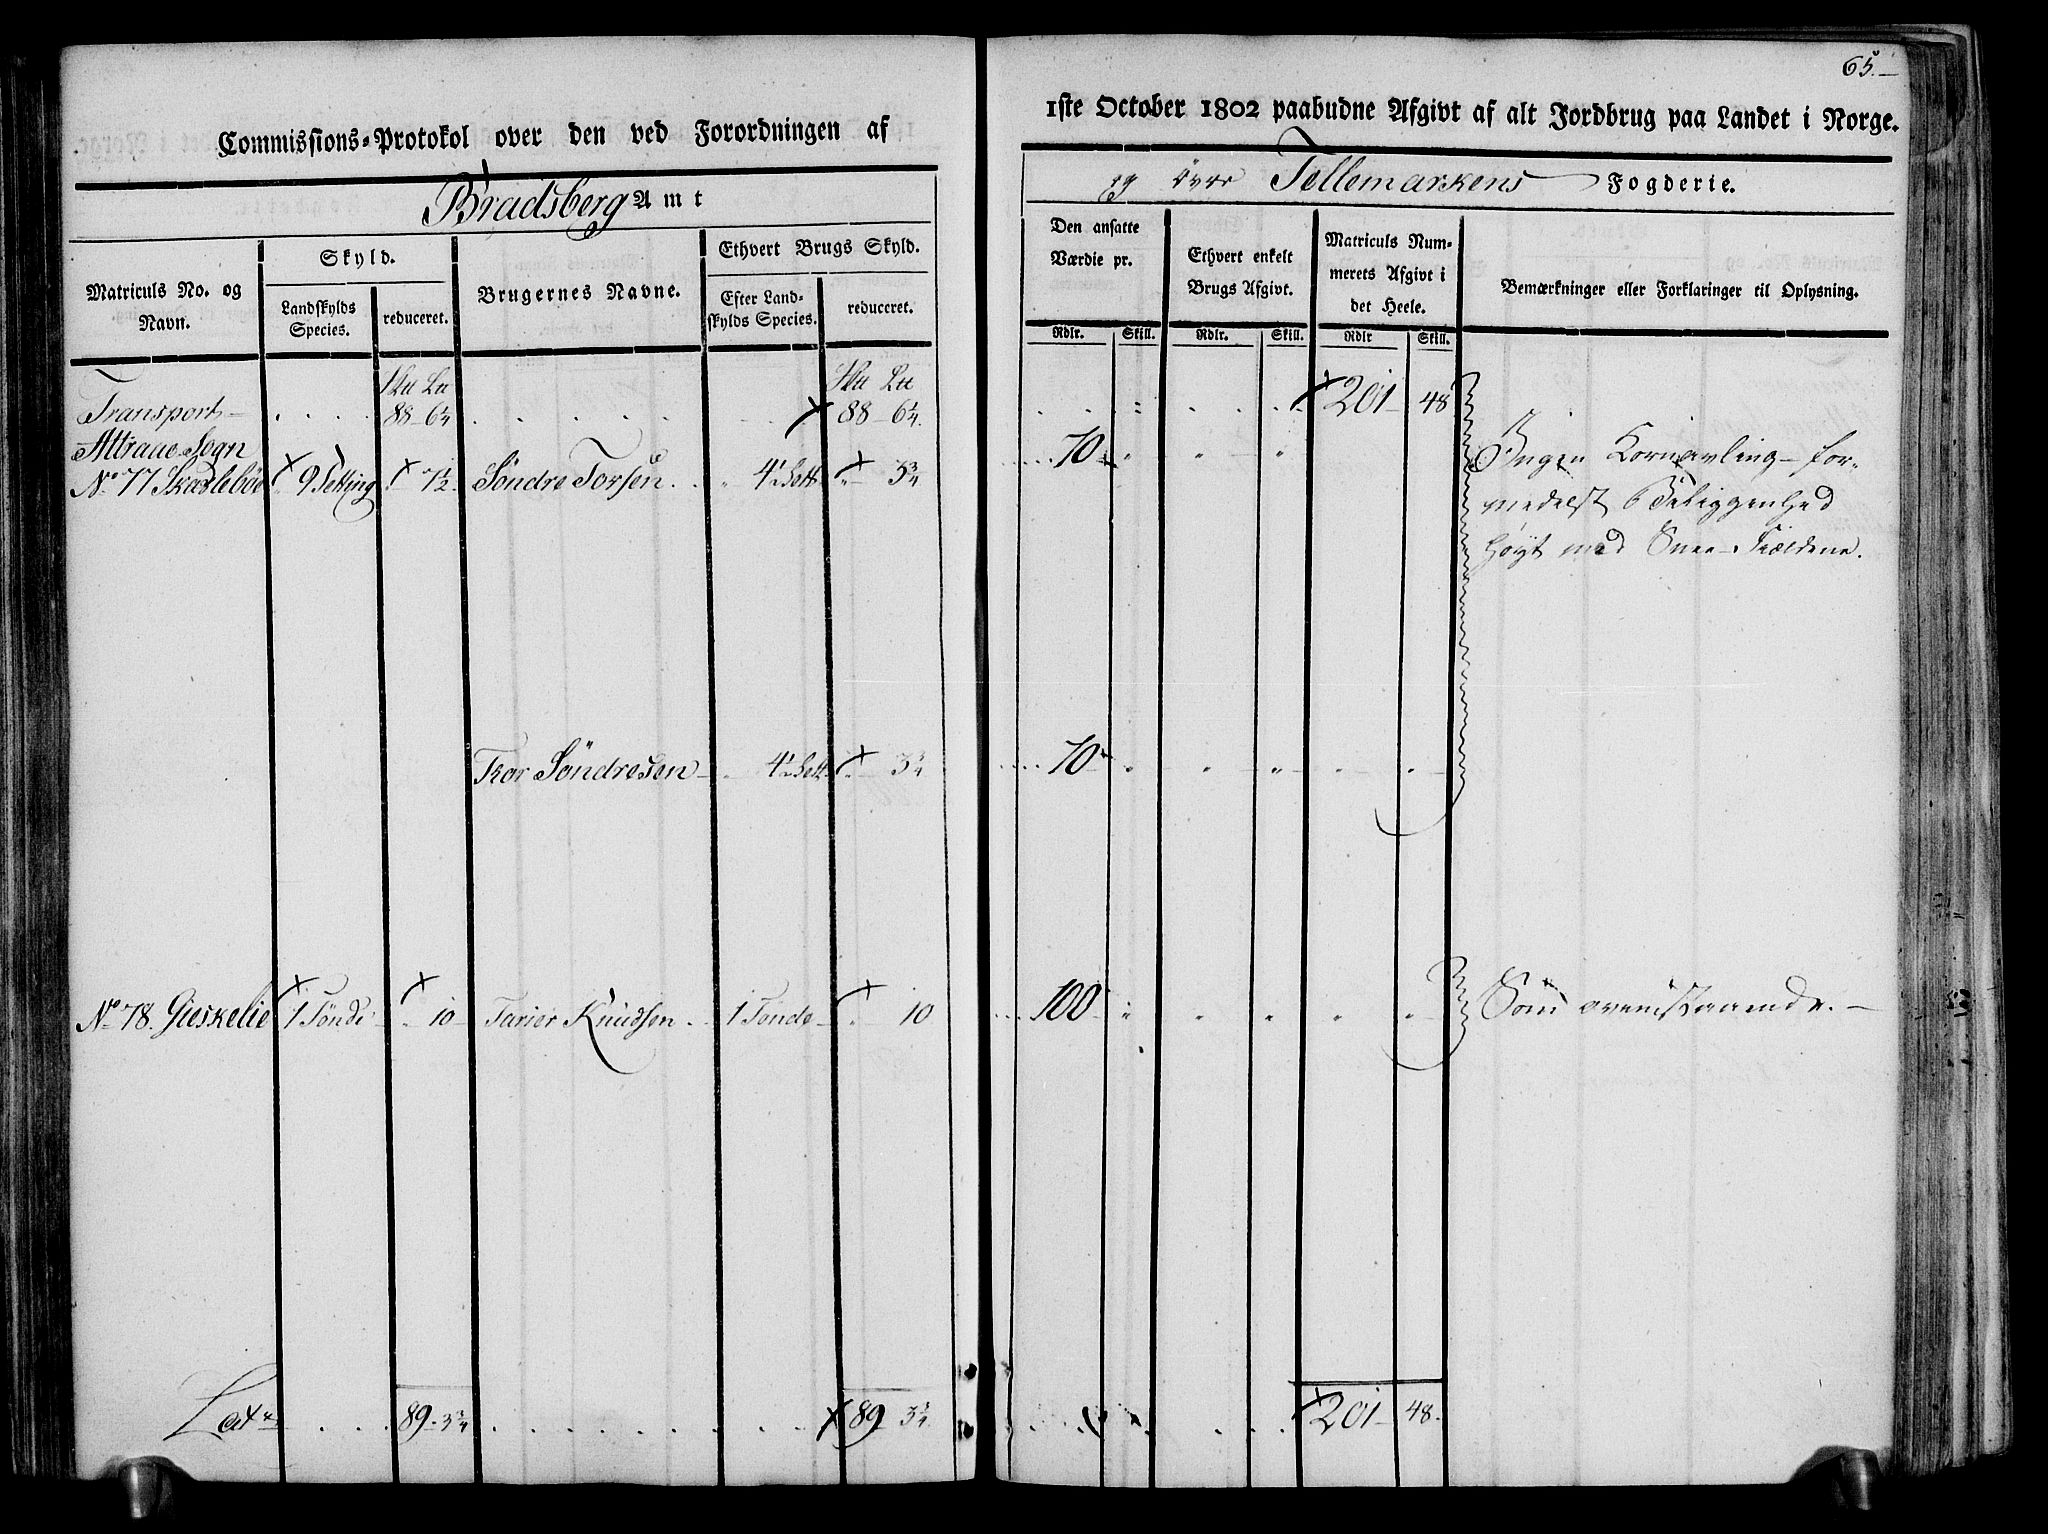 65.
Commissions-Protokol over den ved Forordningen af
1ste October 1802 paabudne Afgivt af alt Jordbrug paa Landet i Norge.
Bradsberg Amt
og övre Tellemarkens Fogderie.
Matriculs No. og Navn.
Skyld.
Landskylds Species.
reduceret.
Brugernes Navne.
Ethvert Brugs Skyld.
Efter Landskylds Species.
reduceret.
Den ansatte Værdie pr.
Rdlr. Skill.
Ethvert enkelt Brugs Afgivt.
Rdlr. Skill.
Matriculs Nummerets Afgivt i det Heele.
Rdlr Skill.
Bemærkninger eller Forklaringer til Oplysning.
Transport 88 - 6 1/4 88 - 6 1/4 201 - 48
Attraae Sogn
No 77 Skarlebøe 9 Setting 7 1/2 Söndre Torsen 4 1/2 Sett 3 3/4 70
Ingen Kornavling - for-
medelst Beliggenhed
høyt med Snee-Fieldene.
Thor Söndresen 4 1/2 Sett 3 3/4 70
No 78. Gieskelie 1 Tönde 10 Tarier Knudsen 1 Tönde 10 100 Som ovenstaaende.
Lat 89 - 3 3/4 89 3 3/4 201 - 48.